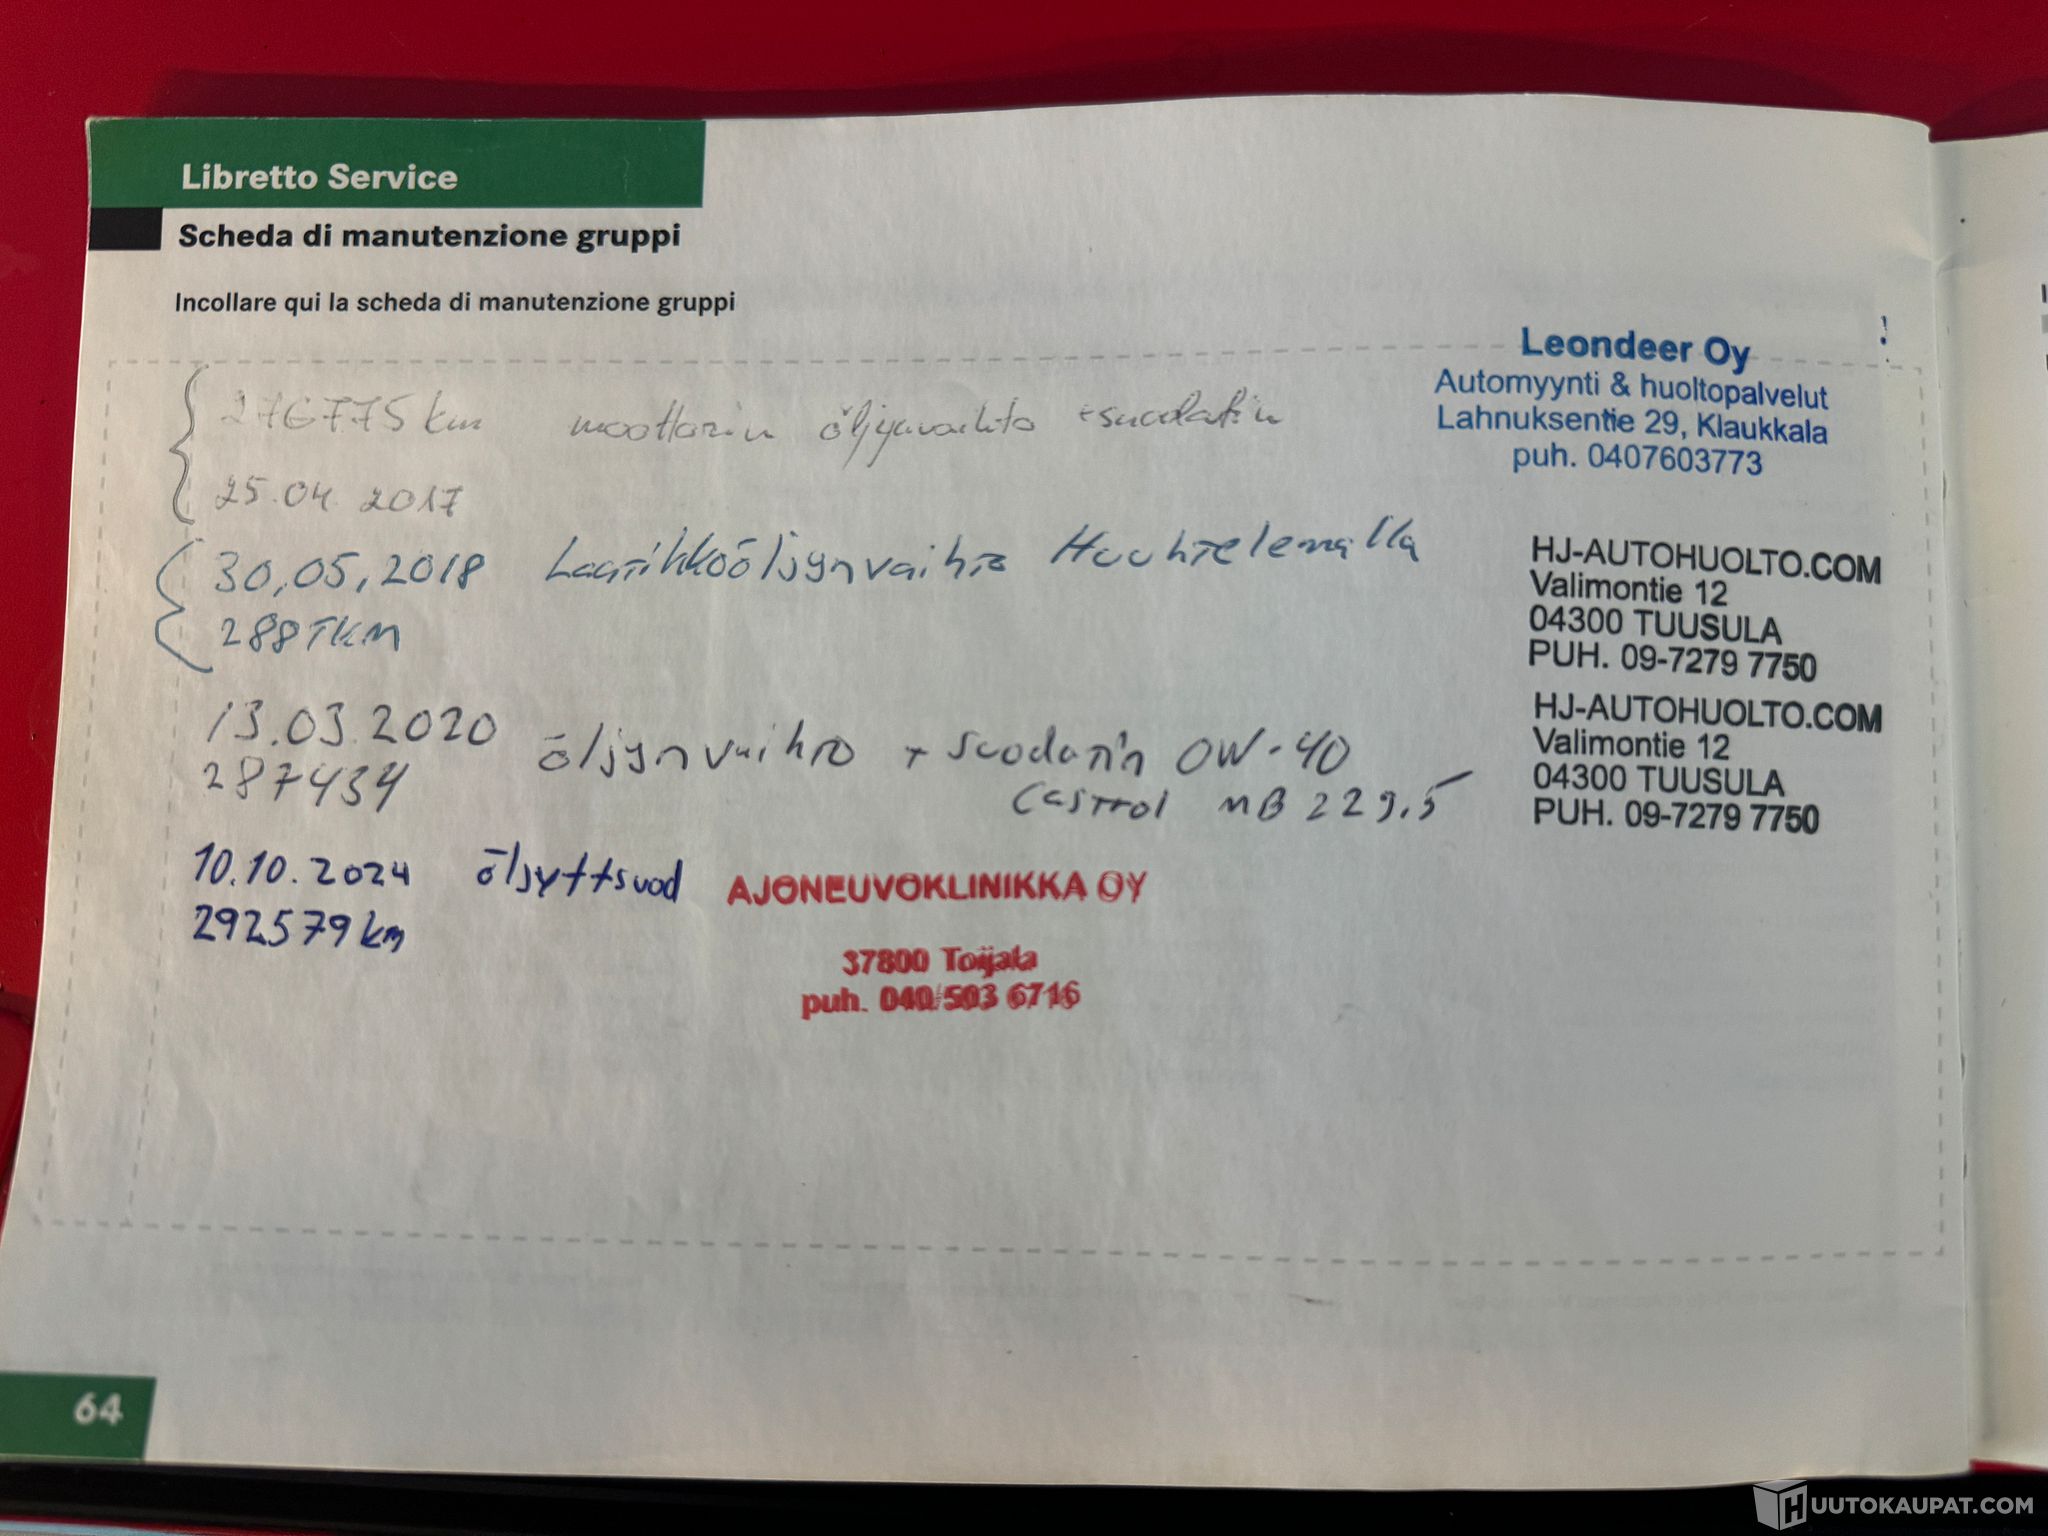 Libretto Service
Scheda di manutenzione gruppi
Incollare qui la scheda di manutenzione gruppi
276775 km moottorin öljynvaihto + suodatin
25.04.2017
Leondeer Oy
Automyynti & huoltopalvelut
Lahnuksentie 29, Klaukkala
puh. 0407603773
30,05,2018 Laatikkoöljynvaihto Huuhtelemalla
288TKM
HJ-AUTOHUOLTO.COM
Valimontie 12
04300 TUUSULA
PUH. 09-7279 7750
13.03.2020 öljynvaihto + suodatin 0W-40
287434 Castrol MB 229.5
HJ-AUTOHUOLTO.COM
Valimontie 12
04300 TUUSULA
PUH. 09-7279 7750
10.10.2024 öljyttsuod
292579 km
AJONEUVOKLINIKKA OY
37800 Toijala
puh. 040/503 6716
64
HUUTOKAUPAT.COM